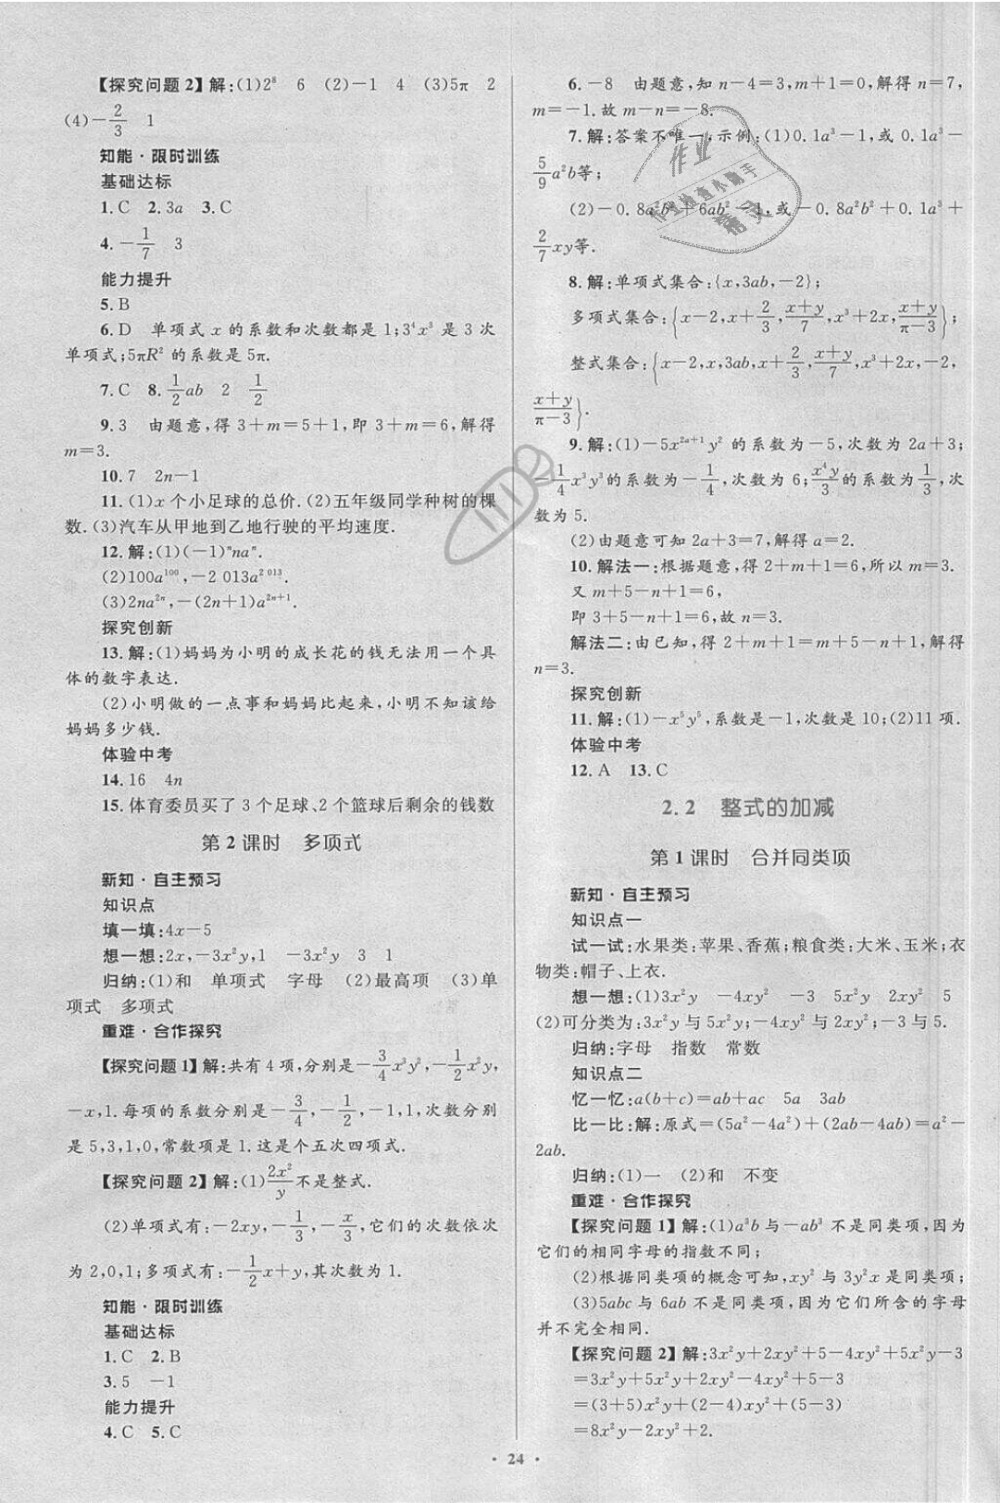 【探究问题2】解:(1)2⁸  6  (2)-1  4  (3)5π  2
(4)-2/3  1
知能·限时训练
基础达标
1.C  2.3a  3.C
4.-1/7  3
能力提升
5.B
6.D  单项式 x 的系数和次数都是1;3⁴x³ 是3次
单项式;5πR² 的系数是5π.
7.C  8.1/2ab  2  1/2
9.3  由题意,得3+m=5+1,即3+m=6,解得
m=3.
10.7  2n-1
11.(1)x个小足球的总价.(2)五年级同学种树的棵
数.(3)汽车从甲地到乙地行驶的平均速度.
12.解:(1)(-1)ⁿnaⁿ.
(2)100a¹⁰⁰,-2 013a² ⁰¹³.
(3)2na²ⁿ,-(2n+1)a²ⁿ⁺¹.
探究创新
13.解:(1)妈妈为小明的成长花的钱无法用一个具
体的数字表达.
(2)小明做的一点事和妈妈比起来,小明不知该给
妈妈多少钱.
体验中考
14.16  4n
15.体育委员买了3个足球、2个篮球后剩余的钱数
第2课时  多项式
新知·自主预习
知识点
填一填:4x-5
想一想:2x,-3x²y,1  -3x²y  3  1
归纳:(1)和  单项式  字母  (2)最高项  (3)单
项式  多项式
重难·合作探究
【探究问题1】解:共有4项,分别是-3/4x³y²,-1/2x²y,
-x,1.每项的系数分别是-3/4,-1/2,-1,1,次数分别
是5,3,1,0,常数项是1.这是个五次四项式.
【探究问题2】解:(1)2x²/y不是整式.
(2)单项式有:-2xy,-1/3,-x/3,它们的次数依次
为2,0,1;多项式有:-1/2x+y,其次数为1.
知能·限时训练
基础达标
1.C  2.B
3.5  -1
能力提升
4.C  5.C
6.-8  由题意,知n-4=3,m+1=0,解得n=7,
m=-1.故m-n=-8.
7.解:答案不唯一,示例:(1)0.1a³-1,或0.1a³+
5/9a²b等;
(2)-0.8a²b²+6ab²-1,或-0.8a²b²+0.1a³+
2/7xy等.
8.解:单项式集合:{x,3ab,-2};
多项式集合:{x-2,x+2/3,(x+y)/7,x³+2x,(x+y)/(π-3)};
整式集合:{x-2,x,3ab,x+2/3,(x+y)/7,x³+2x,-2,
(x+y)/(π-3)}.
9.解:(1)-5x²ᵃ⁺¹y² 的系数为-5,次数为2a+3;
-1/4x³y³的系数为-1/4,次数为6;x⁴y/3的系数为1/3,次
数为5.
(2)由题意可知2a+3=7,解得a=2.
10.解法一:根据题意,得2+m+1=6,所以m=3.
又m+5-n+1=6,
即3+5-n+1=6,故n=3.
解法二:由已知,得2+m+1=m+5-n+1,解得
n=3.
探究创新
11.解:(1)-x⁵y⁵,系数是-1,次数是10;(2)11项.
体验中考
12.A  13.C
2.2  整式的加减
第1课时  合并同类项
新知·自主预习
知识点一
试一试:水果类:苹果、香蕉;粮食类:大米、玉米;衣
物类:帽子、上衣.
想一想:(1)3x²y  -4xy²  -3  5x²y  2xy²  5
(2)可分类为:3x²y与5x²y;-4xy²与2xy²;-3与5.
归纳:字母  指数  常数
知识点二
忆一忆:a(b+c)=ab+ac  5a  3ab
比一比:解:原式=(5a²-4a²)+(2ab-4ab)=a²-
2ab.
归纳:(1)一  (2)和  不变
重难·合作探究
【探究问题1】解:(1)a³b与-ab³ 不是同类项,因为
它们的相同字母的指数不同;
(2)根据同类项的概念可知,xy² 与3y²x是同类项;
(3)5abc与6ab不是同类项,因为它们所含的字母
并不完全相同.
【探究问题2】解:3x²y+2xy²+5-4xy²+5x²y-3
=3x²y+5x²y+2xy²-4xy²+5-3
=(3+5)x²y+(2-4)xy²+(5-3)
=8x²y-2xy²+2.
·24·